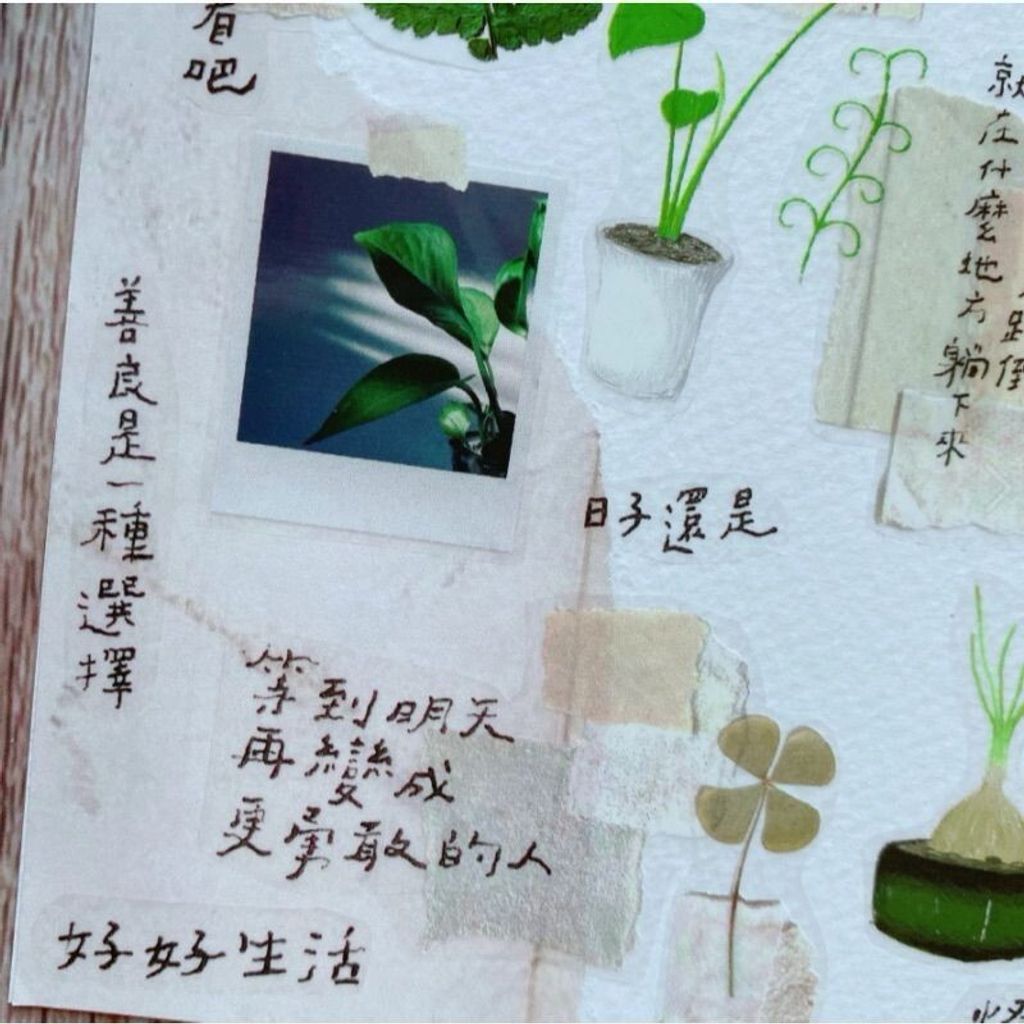 有吧
就在什麼地方躺下來
跌倒
善良是一種選擇
日子還是
等到明天
再變成
更勇敢的人
好好生活